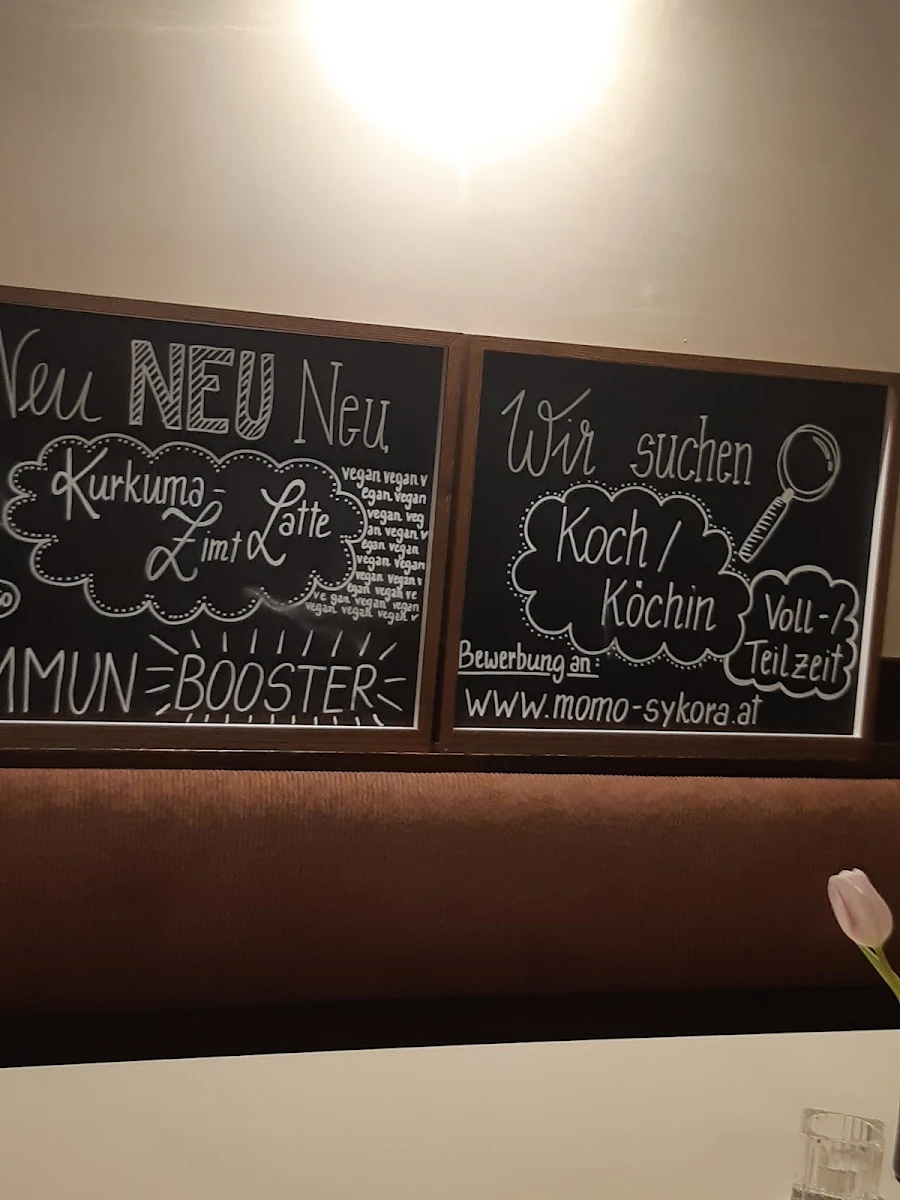 Neu NEU Neu
Kurkuma-
Zimt Latte
vegan vegan v
egan vegan
vegan veg
an vegan v
egan vegan
vegan vegan
vegan vegan
egan vegan ve
gan vegan vegan
vegan vegan vegan v
MMUN BOOSTER
Wir suchen
Koch /
Köchin
Voll-/
Teilzeit
Bewerbung an:
www.momo-sykora.at